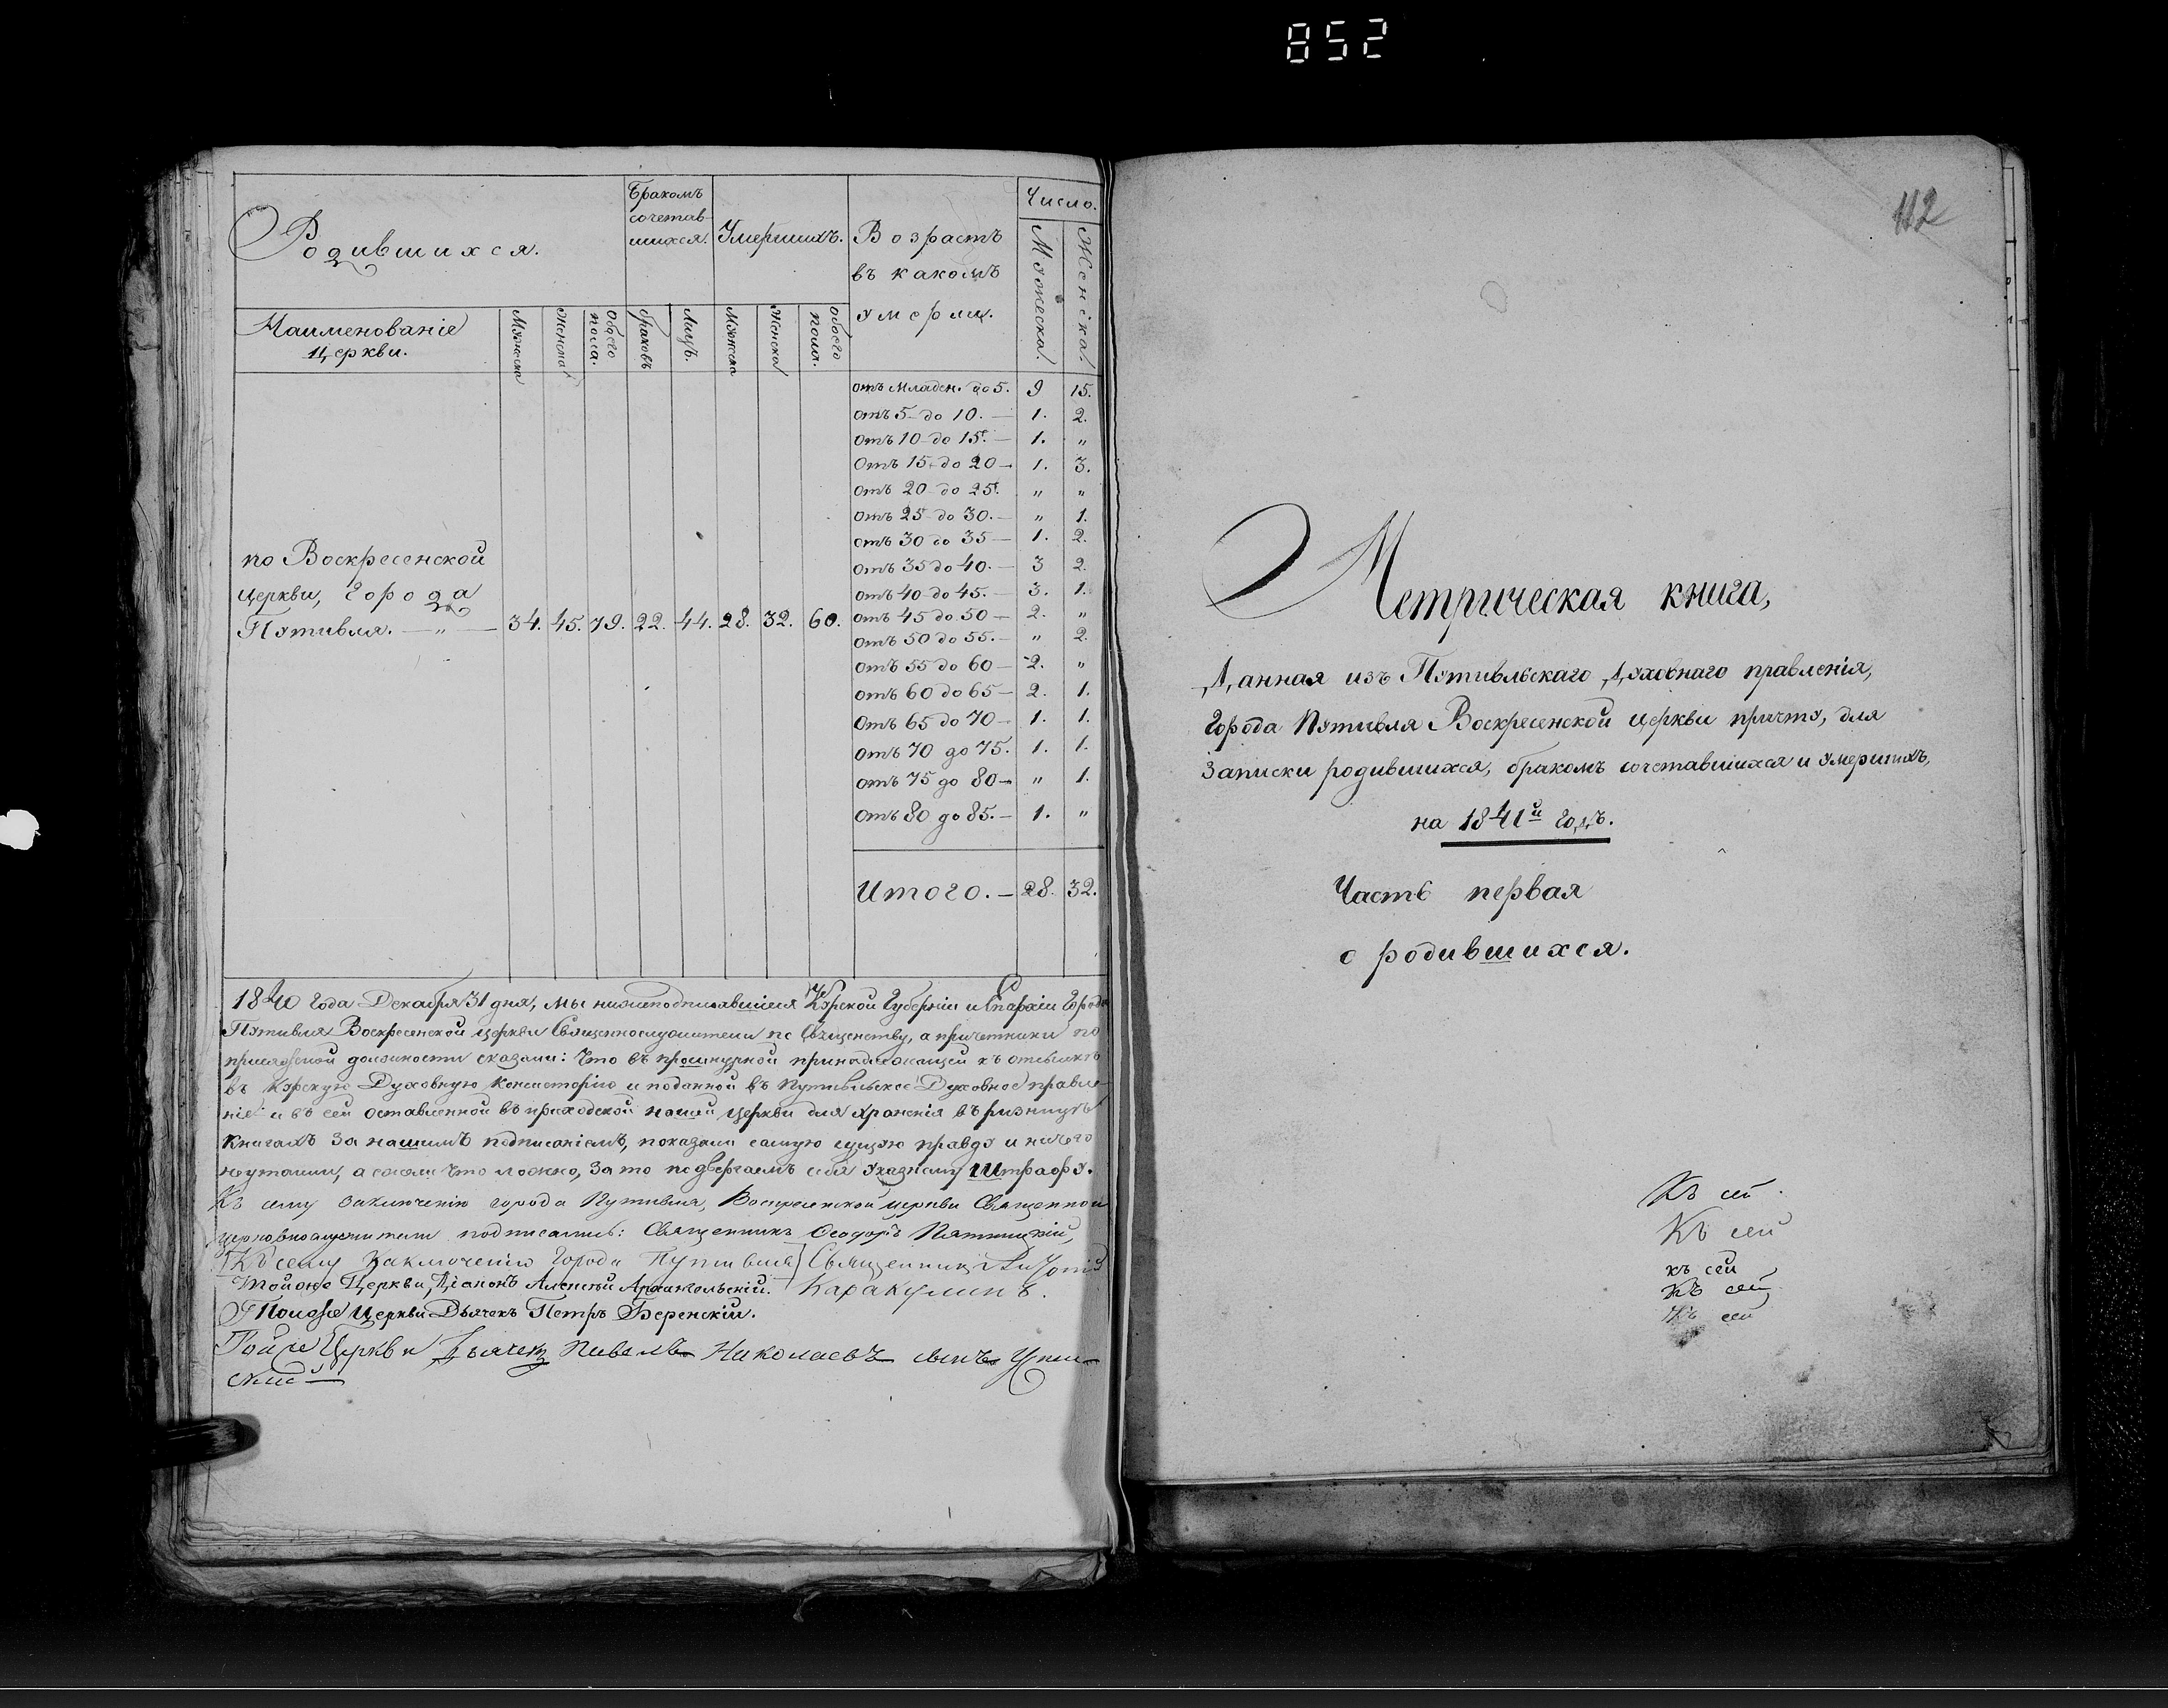 852
Родившихся.
Бракомъ сочетав-шихся.
Умершихъ.
Возрастъ въ какомъ умерли.
Число.
Мужеска.
Женска.
Наименованіе Церкви.
Мужеска
Женска
обоего пола.
браковъ
Лицъ.
Мужеска
Женска
обоего пола.
отъ Младен. до 5. 9 15.
отъ 5 до 10. — 1. 2.
отъ 10 до 15. — 1. "
отъ 15 до 20 — 1. 3.
отъ 20 до 25. " "
отъ 25 до 30. — " 1.
отъ 30 до 35 — 1. 2.
отъ 35 до 40. — 3 2.
отъ 40 до 45. — 3. 1.
отъ 45 до 50 — 2. "
отъ 50 до 55. — " 2.
отъ 55 до 60 — 2. "
отъ 60 до 65 — 2. 1.
отъ 65 до 70 — 1. 1.
отъ 70 до 75. 1. 1.
отъ 75 до 80 — " 1.
отъ 80 до 85. — 1. "
Итого. — 28. 32.
по Воскресенской
церкви, города
Путивля. — " — 34. 45. 79. 22. 44. 28. 32. 60.
1840 года Декабря 31 дня, мы нижеподписавшіеся Курской Губерніи и Епархіи Города
Путивля Воскресенской церкви Священнослужители по Священству, а причетники по
присяжной должности сказали: что въ прошнурной принадлежащей къ отсылкѣ
въ Курскую Духовную Консисторію и поданной въ Путивльское Духовное правле-
ніе и въ сей оставленной въ приходской нашей церкви для храненія въ ризницѣ
книгахъ за нашимъ подписаніемъ, показали самую сущую правду и ничего
неутаили, а ежели что ложно, за то подвергаемъ себя указному Штрафу.
Къ сему заключенію города Путивля, Воскресенской церкви Священно и
церковнослужители подписались: Священникъ Ѳеодоръ Пятницкій,
Къ сему Заключенію Города Путивля Священникъ
Тойже Церкви, Діаконъ Алексѣй Архангельскій. Каракулинъ.
Тойже Церкви Дьячекъ Петръ Беренскій.
Тойже Церкви Дьячекъ Павелъ Николаевъ сынъ
скій
112
Метрическая книга,
Данная изъ Путивльскаго Духовнаго правленія,
Города Путивля Воскресенской церкви причту, для
Записки родившихся, бракомъ сочетавшихся и умершихъ,
на 1841й годъ.
Часть первая
о родившихся.
Къ сей
Къ сей
къ сей
Къ сей
Къ сей